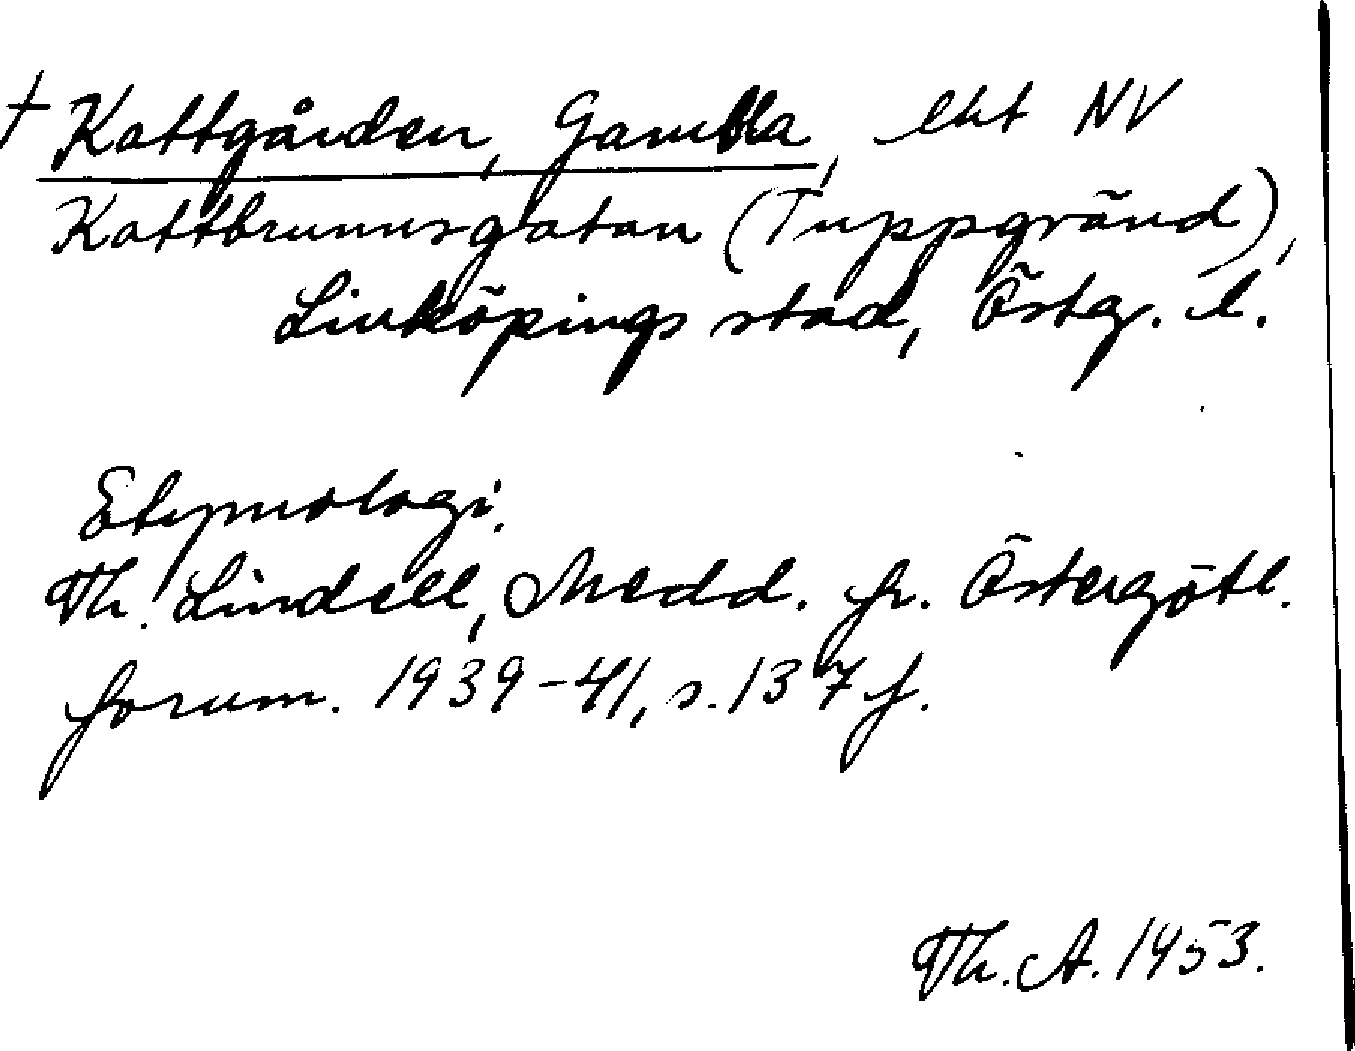 † Kattgården, Gamla, lht NV
Kattbrunnsgatan (Tuppgränd),
Linköpings stad, Östg. l.
Etymologi.
Th. Lindell, Medd. fr. Östergötl.
fornm. 1939-41, s. 137 f.
Th. A. 1953.